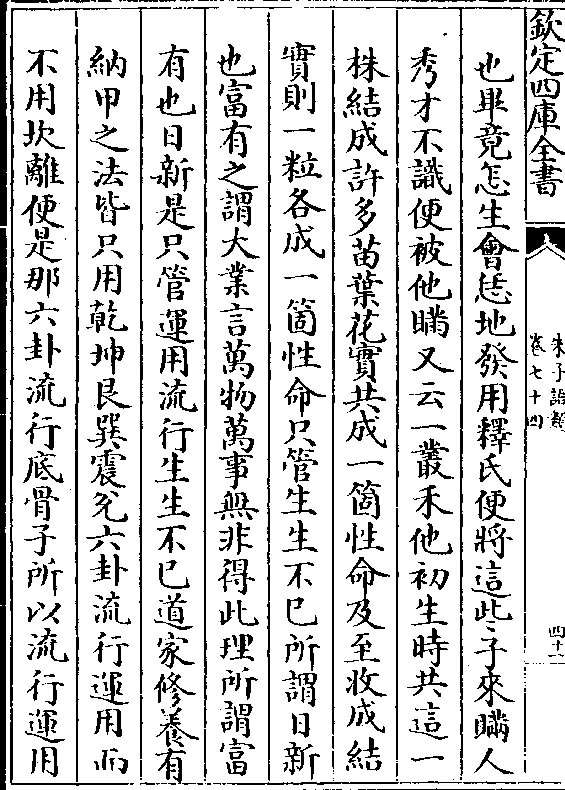 欽定四庫全書
朱子語類
卷七十四
四十一
也畢竟怎生會恁地發用釋氏便將這些子來瞞人
秀才不識便被他瞞又云一叢禾他初生時共這一
株結成許多苗葉花實共成一箇性命及至收成結
實則一粒各成一箇性命只管生生不已所謂日新
也富有之謂大業言萬物萬事無非得此理所謂富
有也日新是只管運用流行生生不已道家修養有
納甲之法皆只用乾坤艮巽震兌六卦流行運用而
不用坎離便是那六卦流行底骨子所以流行運用